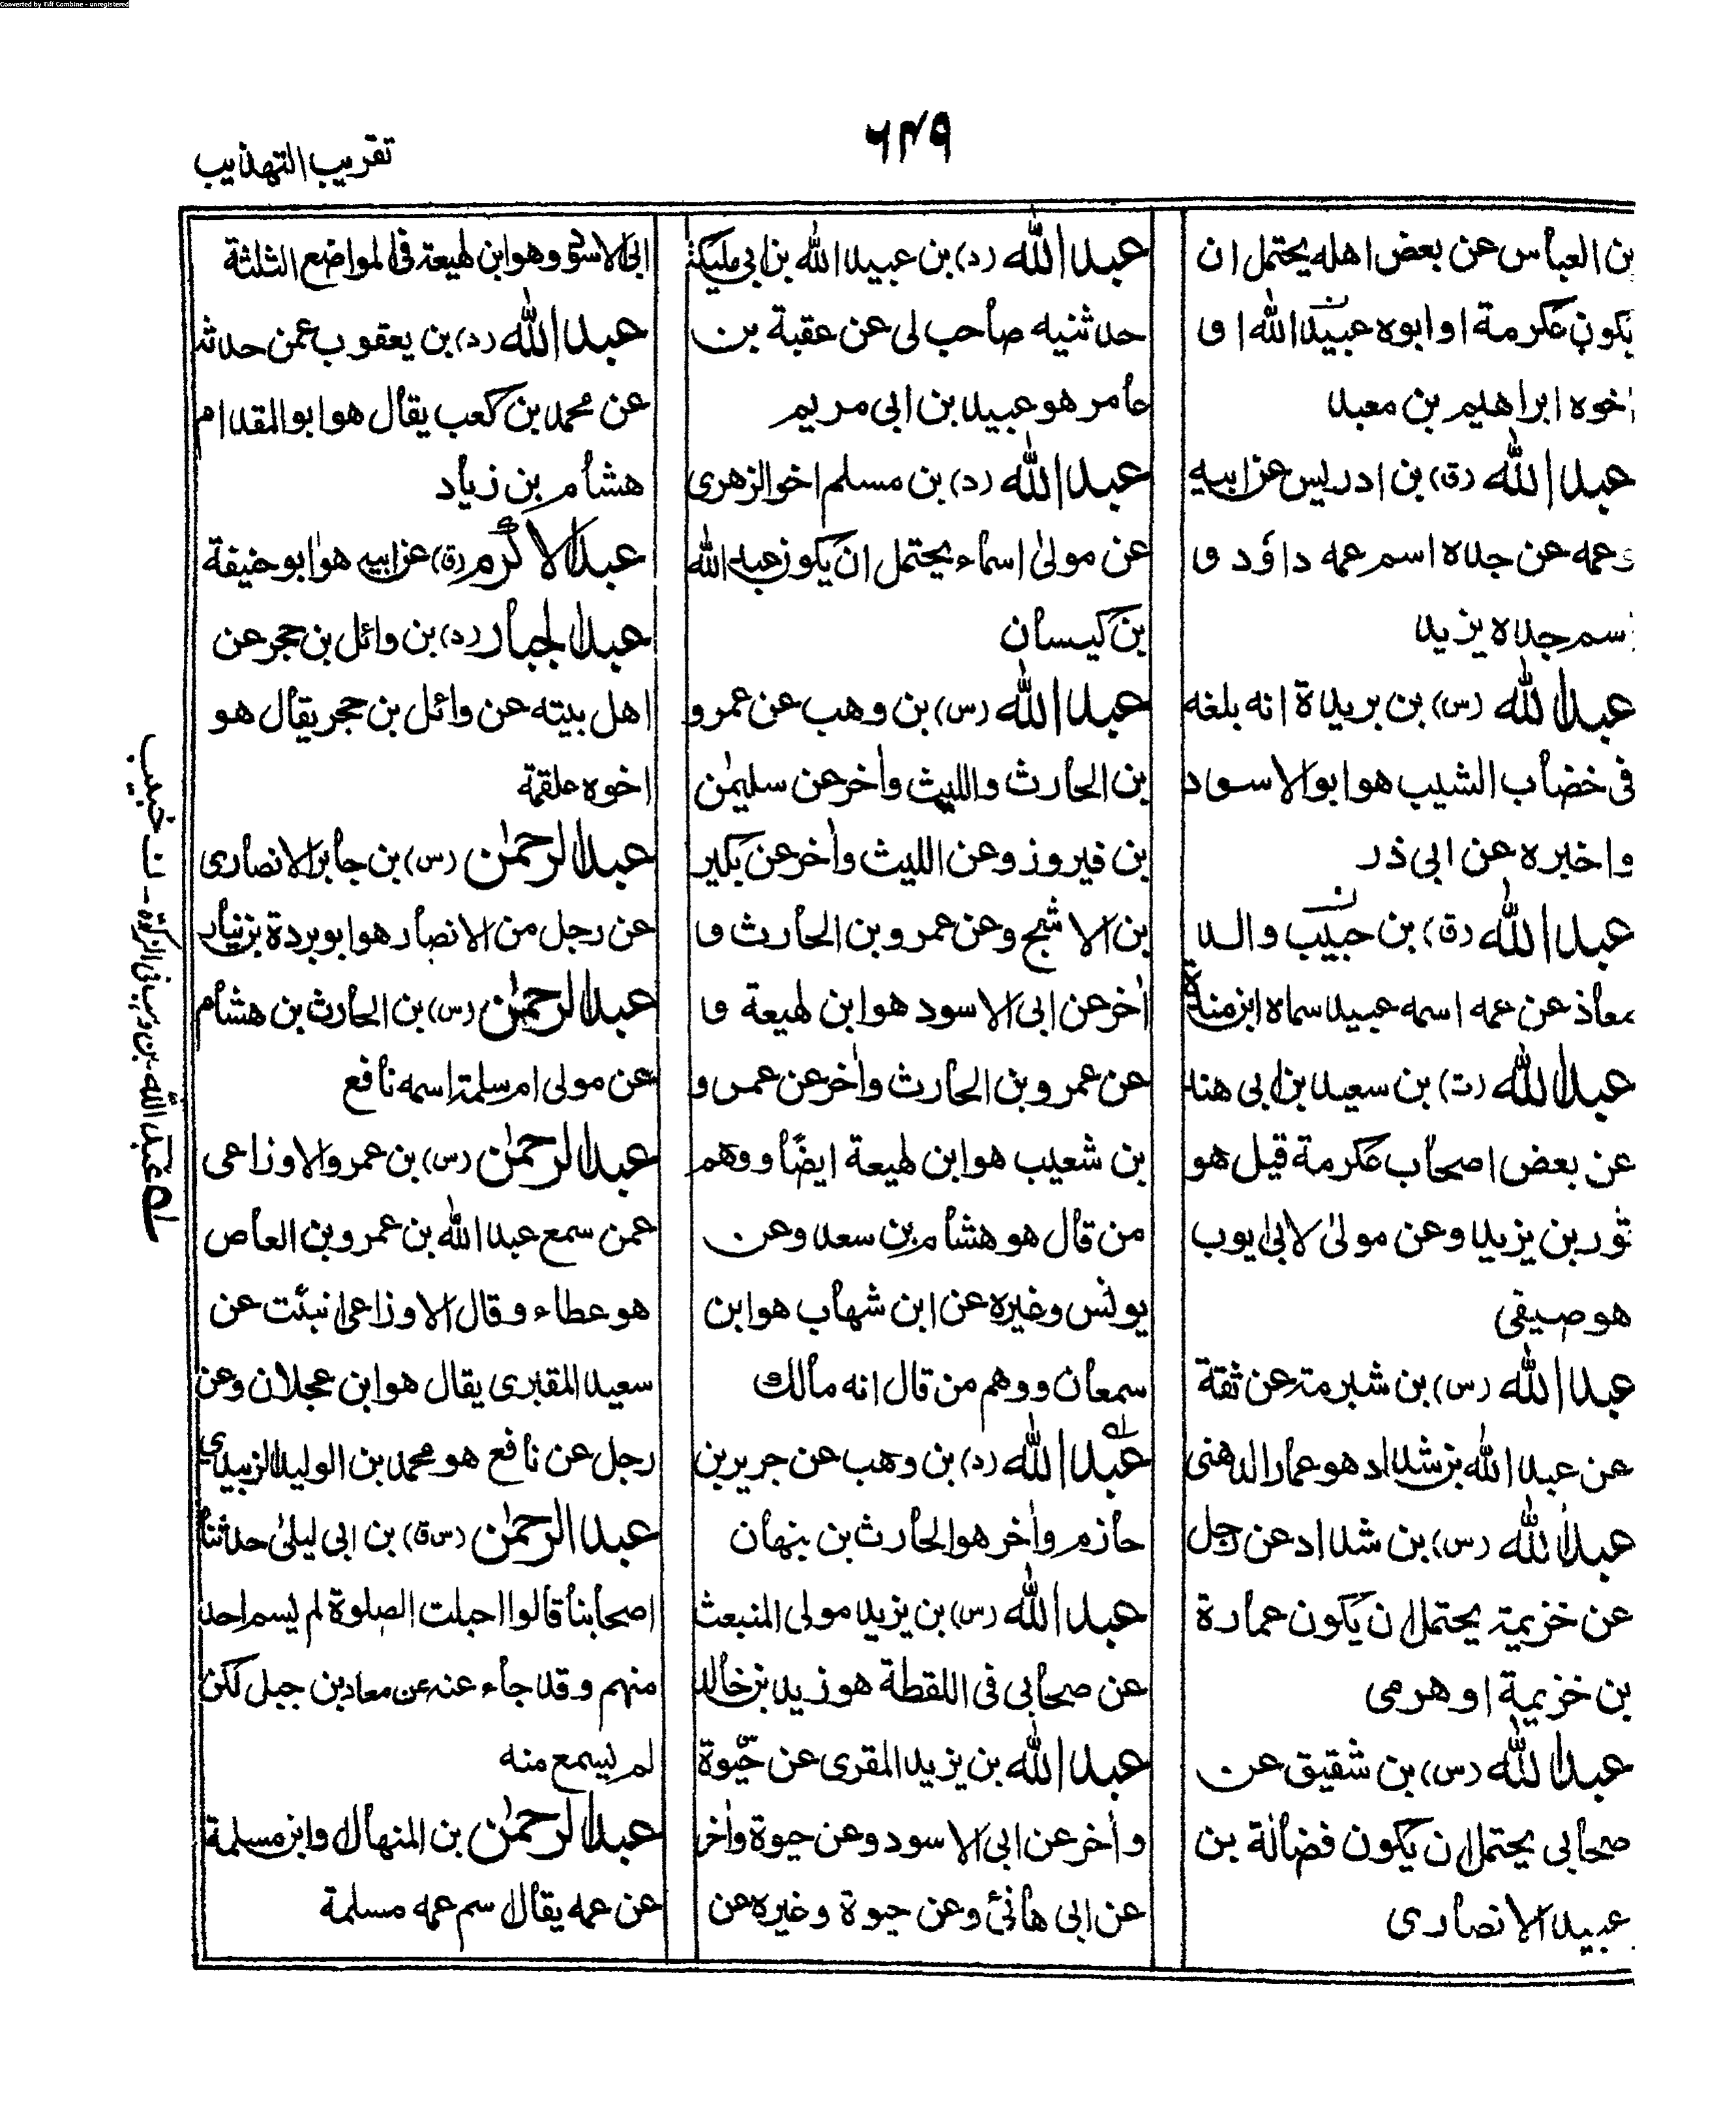 Converted by Tiff Combine - unregistered
۶۴۹
تقريب التهذيب
بن العباس عن بعض اهله يحتمل ان
يكون عكرمة او ابوه عبيد الله او
اخوه ابراهيم بن معبد
عبد الله (ق) بن ادريس عن ابيه
وعمه عن جده اسم عمه داؤد و
اسم جده يزيد
عبد الله (س) بن بريدة انه بلغه
فى خضاب الشيب هو ابو الاسود
واخبره عن ابى ذر
عبد الله (ق) بن حبيب والد
معاذ عن عمه اسمه عبيد سماه ابن مندة
عبد الله (ت) بن سعيد بن ابى هند
عن بعض اصحاب عكرمة قيل هو
ثور بن يزيد وعن مولىٰ لابى ايوب
هو صيفى
عبد الله (س) بن شبرمة عن ثقة
عن عبد الله بن شداد هو عمار الدهنى
عبد الله (س) بن شداد عن رجل
عن خزيمة يحتمل ان يكون عمارة
بن خزيمة او هرمى
عبد الله (س) بن شقيق عن
صحابى يحتمل ان يكون فضالة بن
عبيد الانصارى
عبد الله (د) بن عبيد الله بن ابى مليكة
حدثنيه صاحب لى عن عقبة بن
عامر هو عبيد بن ابى مريم
عبد الله (د) بن مسلم اخو الزهرى
عن مولىٰ اسماء يحتمل ان يكون عبد الله
بن كيسان
عبد الله (س) بن وهب عن عمرو
بن الحارث والليث واٰخر عن سليمٰن
بن فيروز وعن الليث واٰخر عن بكير
بن الاشج وعن عمرو بن الحارث و
اٰخر عن ابى الاسود هو ابن لهيعة و
عن عمرو بن الحارث واٰخر عن عمرو
بن شعيب هو ابن لهيعة ايضًا ووهم
من قال هو هشام بن سعد وعن
يونس وغيره عن ابن شهاب هو ابن
سمعان ووهم من قال انه مالك
عبد الله (د) بن وهب عن جرير بن
حازم واٰخر هو الحارث بن بنهان
عبد الله (س) بن يزيد مولى المنبعث
عن صحابى فى اللقطة هو زيد بن خالد
عبد الله بن يزيد المقرى عن حيوة
واٰخر عن ابى الاسود وعن حيوة واٰخر
عن ابى هانئ وعن حيوة وغيره عن
ابى الاسود وهو ابن لهيعة فى المواضع الثلثة
عبد الله (د) بن يعقوب عمن حدثه
عن محمد بن كعب يقال هو ابو المقدام
هشام بن زياد
عبد الاكرم (ق) عن ابيه هو ابو حنيفة
عبد الجبار (د) بن وائل بن حجر عن
اهل بيته عن وائل بن حجر يقال هو
اخوه علقمة
عبد الرحمٰن (س) بن جابر الانصارى
عن رجل من الانصار هو ابو بردة بن نيار
عبد الرحمٰن (س) بن الحارث بن هشام
عن مولى ام سلمة اسمه نافع
عبد الرحمٰن (س) بن عمرو الاوزاعى
عمن سمع عبد الله بن عمرو بن العاص
هو عطاء وقال الاوزاعى انبئت عن
سعيد المقبرى يقال هو ابن عجلان وعن
رجل عن نافع هو محمد بن الوليد الزبيدى
عبد الرحمٰن (س ق) بن ابى ليلىٰ حدثنا
اصحابنا قالوا احيلت الصلوة لم يسم احد
منهم وقد جاء عنه عن معاذ بن جبل لكن
لم يسمع منه
عبد الرحمٰن بن المنهال وابن مسلمة
عن عمه يقال سم عمه مسلمة
له عبد الله بن وهب فى الزكوة - ت خبيب